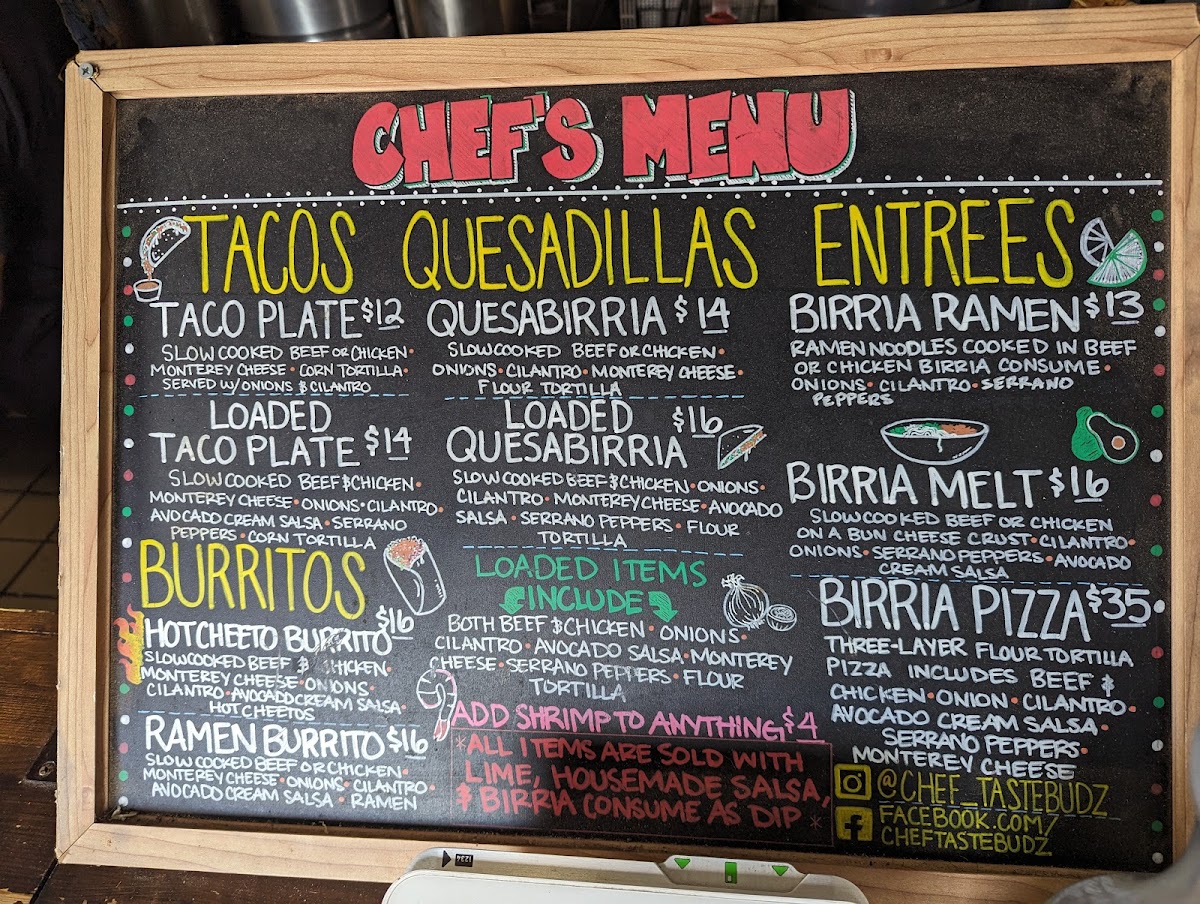 CHEF'S MENU
TACOS
TACO PLATE $12
SLOW COOKED BEEF OR CHICKEN •
MONTEREY CHEESE • CORN TORTILLA •
SERVED W/ONIONS & CILANTRO
LOADED
TACO PLATE $14
SLOW COOKED BEEF & CHICKEN •
MONTEREY CHEESE • ONIONS • CILANTRO •
AVOCADO CREAM SALSA • SERRANO
PEPPERS • CORN TORTILLA
BURRITOS
HOT CHEETO BURRITO $16
SLOW COOKED BEEF & CHICKEN •
MONTEREY CHEESE • ONIONS •
CILANTRO • AVOCADO CREAM SALSA •
HOT CHEETOS
RAMEN BURRITO $16
SLOW COOKED BEEF OR CHICKEN •
MONTEREY CHEESE • ONIONS • CILANTRO •
AVOCADO CREAM SALSA • RAMEN
QUESADILLAS
QUESABIRRIA $14
SLOW COOKED BEEF OR CHICKEN •
ONIONS • CILANTRO • MONTEREY CHEESE •
FLOUR TORTILLA
LOADED $16
QUESABIRRIA
SLOW COOKED BEEF & CHICKEN • ONIONS •
CILANTRO • MONTEREY CHEESE • AVOCADO
SALSA • SERRANO PEPPERS • FLOUR
TORTILLA
LOADED ITEMS
INCLUDE
BOTH BEEF & CHICKEN • ONIONS •
CILANTRO • AVOCADO SALSA • MONTEREY
CHEESE • SERRANO PEPPERS • FLOUR
TORTILLA
ADD SHRIMP TO ANYTHING $4
*ALL ITEMS ARE SOLD WITH
LIME, HOUSEMADE SALSA,
& BIRRIA CONSUME AS DIP *
ENTREES
BIRRIA RAMEN $13
RAMEN NOODLES COOKED IN BEEF
OR CHICKEN BIRRIA CONSUME •
ONIONS • CILANTRO • SERRANO
PEPPERS
BIRRIA MELT $16
SLOW COOKED BEEF OR CHICKEN
ON A BUN CHEESE CRUST • CILANTRO •
ONIONS • SERRANO PEPPERS • AVOCADO
CREAM SALSA
BIRRIA PIZZA $35
THREE-LAYER FLOUR TORTILLA
PIZZA INCLUDES BEEF &
CHICKEN • ONION • CILANTRO •
AVOCADO CREAM SALSA •
SERRANO PEPPERS •
MONTEREY CHEESE
@CHEF_TASTEBUDZ
FACEBOOK.COM/
CHEFTASTEBUDZ
1234